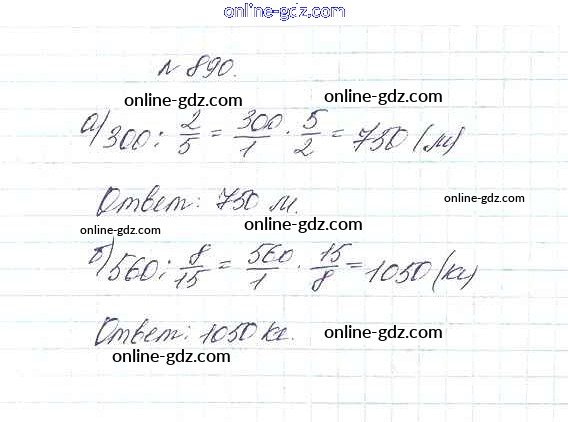 online-gdz.com
№ 890.
online-gdz.com online-gdz.com
а) 300 : 2/5 = 300/1 · 5/2 = 750 (м)
Ответ: 750 м.
online-gdz.com online-gdz.com
б) 560 : 8/15 = 560/1 · 15/8 = 1050 (кг)
Ответ: 1050 кг.
online-gdz.com online-gdz.com